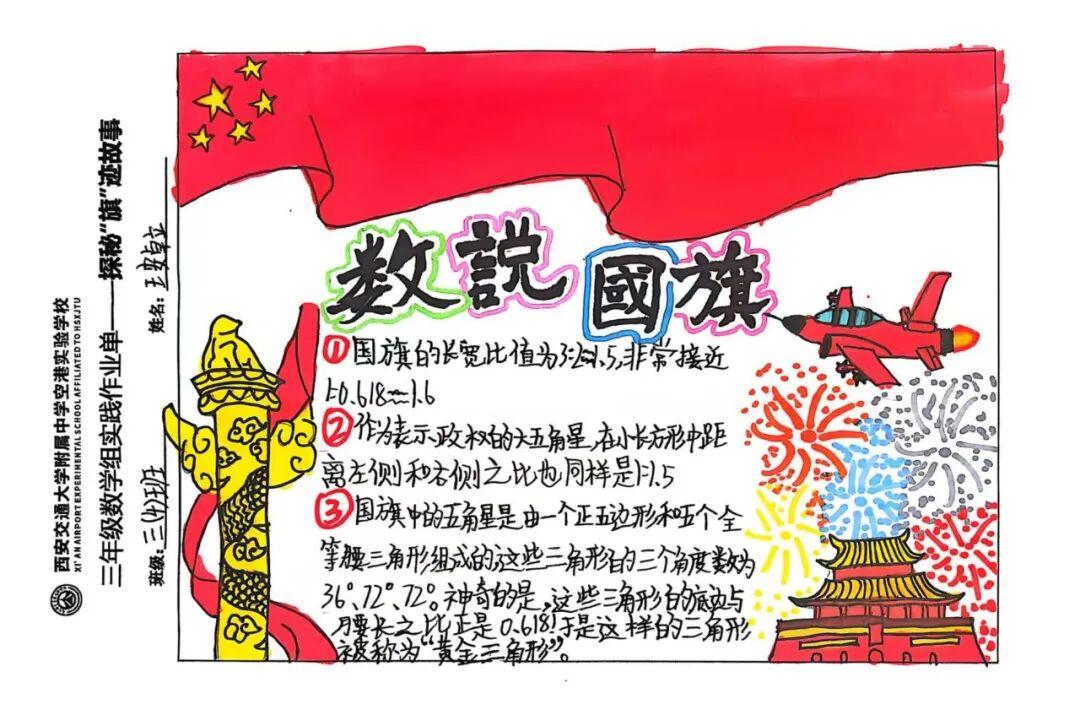 西安交通大学附属中学空港实验学校
XI'AN AIRPORT EXPERIMENTAL SCHOOL AFFILIATED TO HSXJTU
三年级数学组实践作业单——探秘“旗”迹故事
班级：三(4)班
姓名：王安卓立
数說國旗
①国旗的长宽比值为3:2≈1.5,非常接近
1:0.618≈1.6
②作为表示政权的大五角星,在小长方形中距
离左侧和右侧之比也同样是1:1.5
③国旗中的五角星是由一个正五边形和五个全
等腰三角形组成的,这些三角形的三个角度数为
36°、72°、72°。神奇的是,这些三角形的底边与
腰长之比正是0.618!于是这样的三角形
被称为“黄金三角形”。